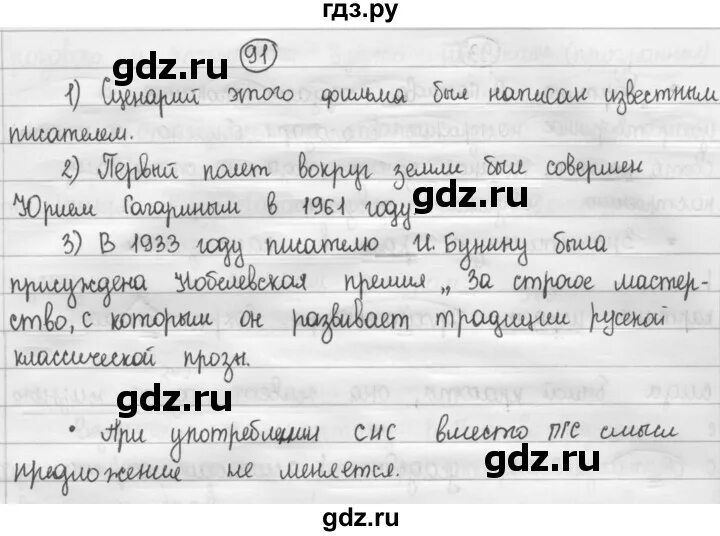 гдз.ру
91
1) Сценарий этого фильма был написан известным
писателем.
2) Первый полет вокруг земли был совершен
Юрием Гагариным в 1961 году
3) В 1933 году писателю И. Бунину была
присуждена Нобелевская премия „За строгое мастер-
ство, с которым он развивает традиции русской
классической прозы.
• При употреблении СИС вместо ПГС смысл
предложение не меняется.
gdz.ru
gdz.ru
gdz.ru
gdz.ru
gdz.ru
gdz.ru
gdz.ru
gdz.ru